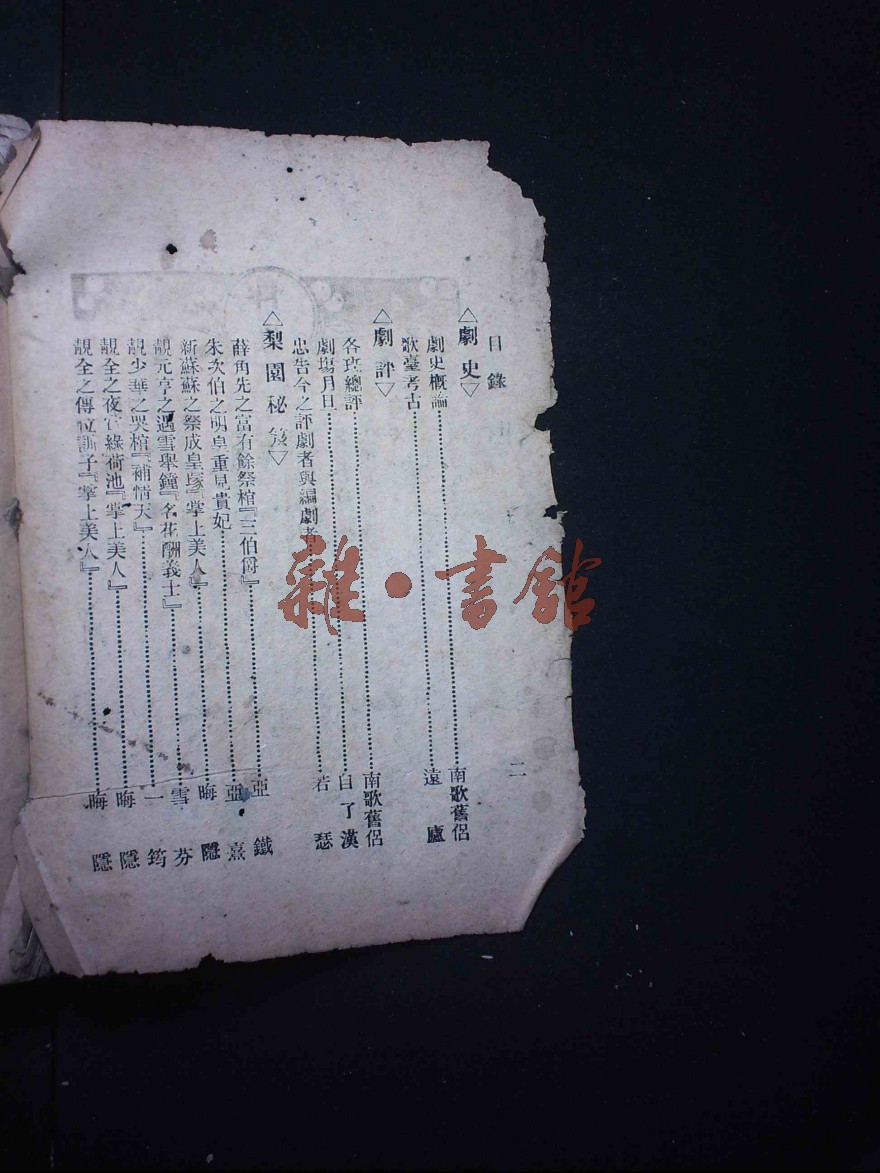 目錄
二
△劇史▽
劇史概論 南歌舊侶
歌臺考古 遠廬
△劇評▽
各班總評 南歌舊侶
劇塲月旦 自了漢
忠告今之評劇者與編劇者 若瑟
△梨園秘笈▽
薛角先之富有餘祭棺『三伯爵』 亞鐵
朱次伯之明皇重見貴妃 亞熹
新蘇蘇之祭成皇塚『掌上美人』 晦隱
靚元亨之遇雪舉鐘『名花酬義士』 雪芬
靚少華之哭棺『補情天』 一筠
靚全之夜宴綠荷池『掌上美人』 晦隱
靚全之傳位訓子『掌上美人』 晦隱
雜·書館